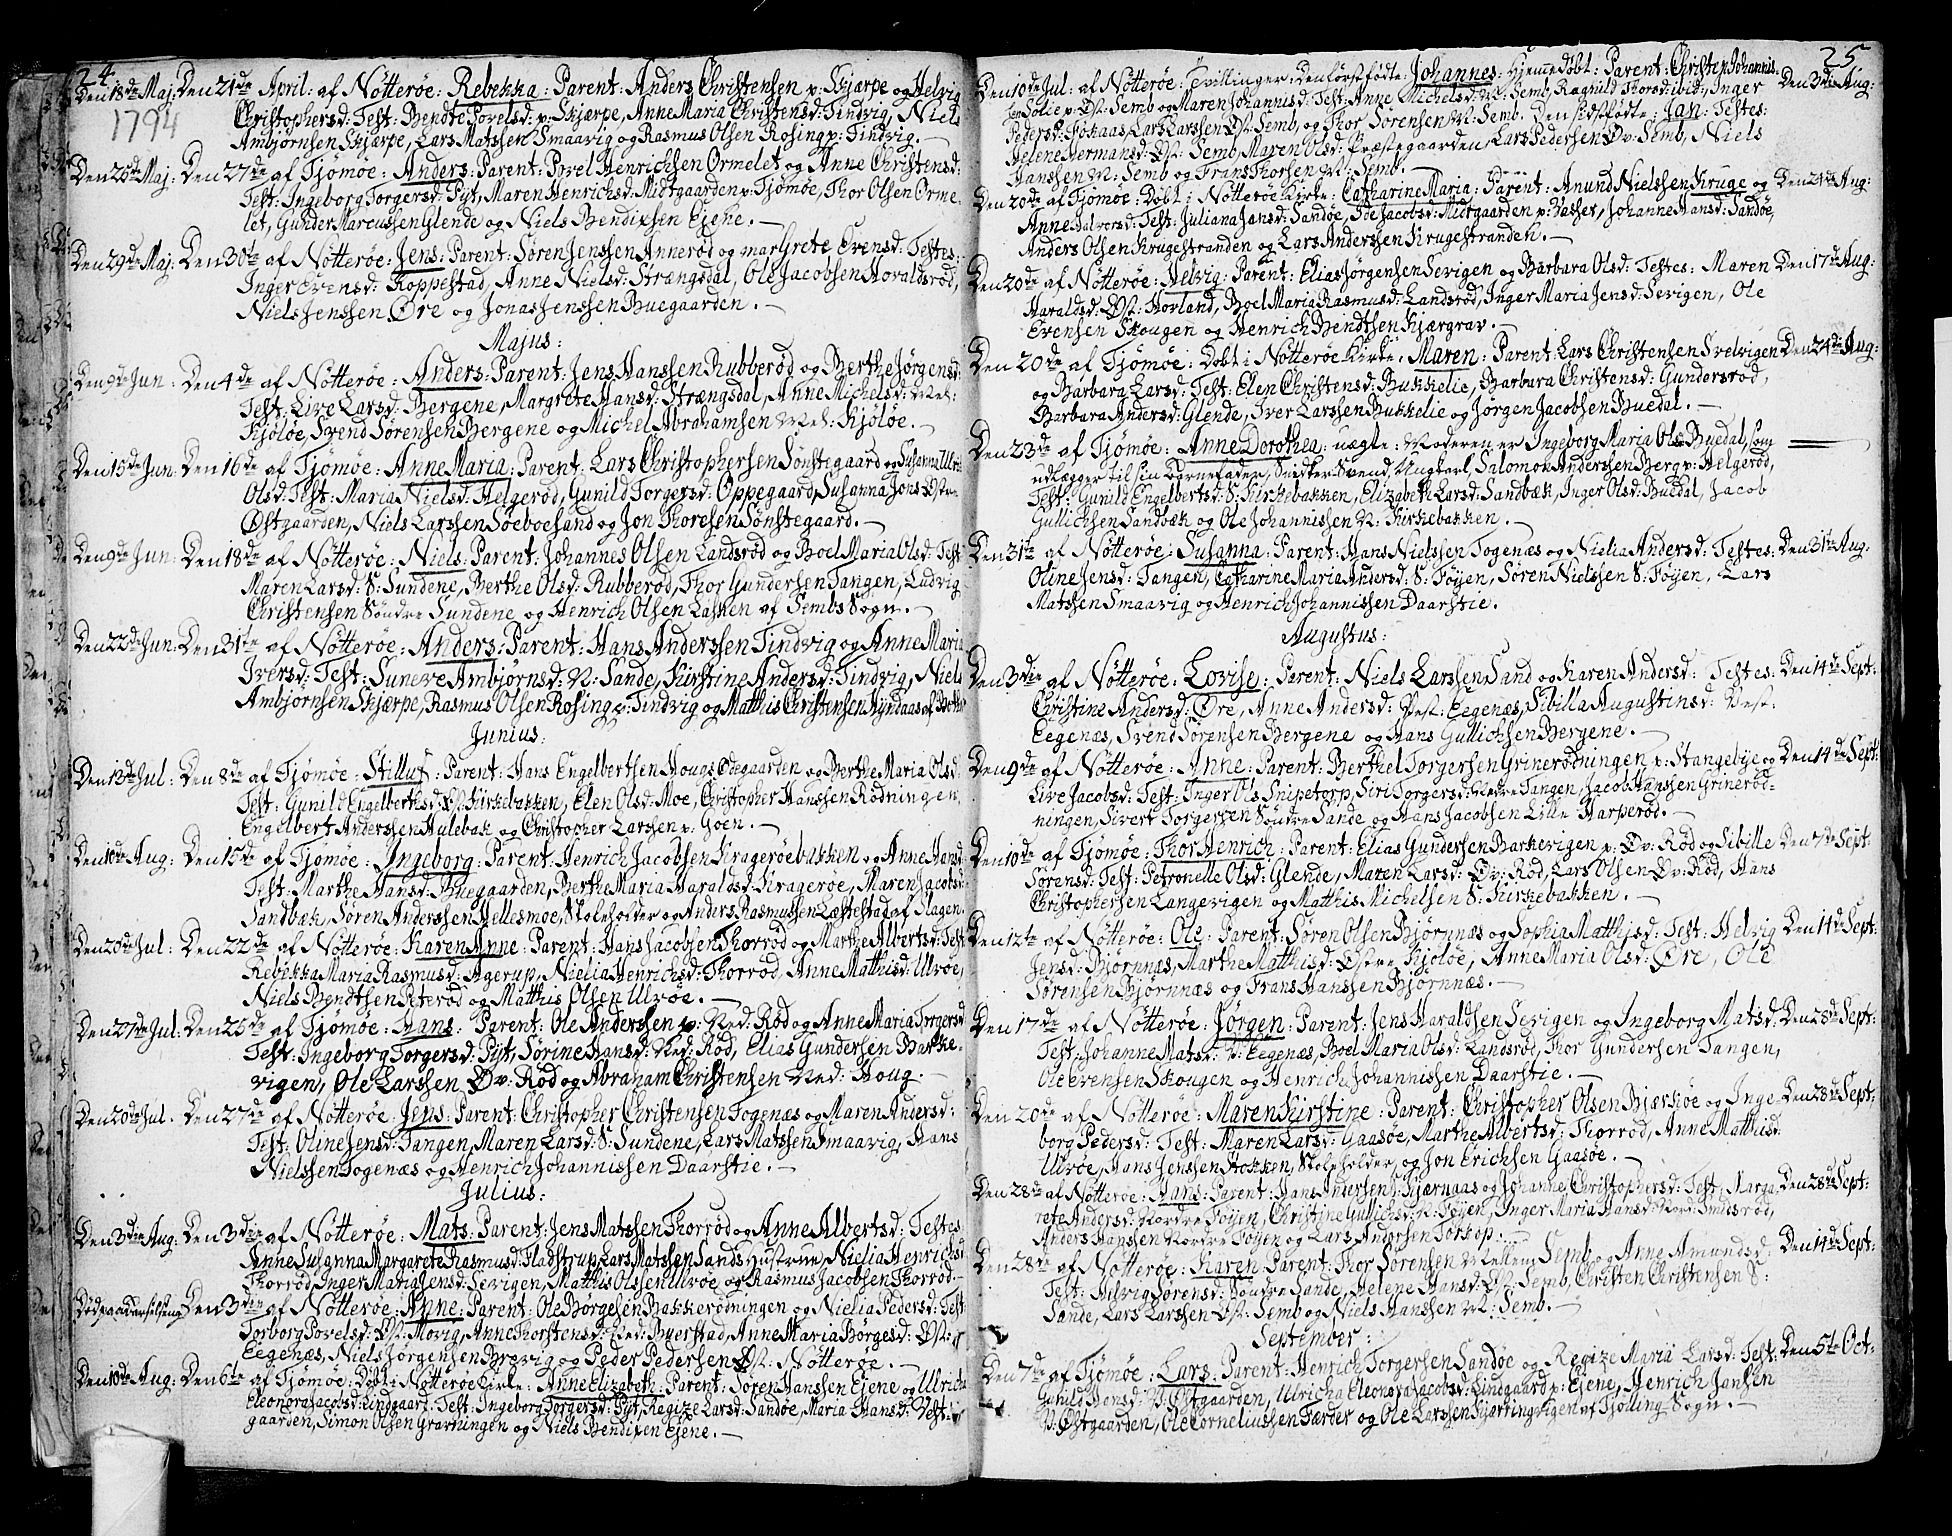 24
Den 18de Maj: Den 21de April: af Nötteröe: Rebekka: Parent: Anders Christensen p: Skjerpe og Helvig
1794 Christophersd: Test: Bendte Povelsd: p: Skjerpe, Anne Maria Christensd: Tindvig, Niels
Ambjörnsen Skjærpe, Lars Matssen Smaavig og Rasmus Olsen Rosing p: Tindvig.
Den 25de Maj: Den 27de af Tjömöe: Anders: Parent: Povel Henrichsen Ormelet og Anne Christensd:
Test: Ingeborg Torgersd: Pyt, Maren Henrichsd: Midtgaarden p: Tjömöe, Thor Olsen Orme
let, Gunder Marcussen Glende og Niels Bendixsen Ejene.
Den 29de Maj: Den 30te af Nötteröe: Jens: Parent: Sören Jenssen Anneröd og Margrete Evensd: Testes:
Inger Evensd: Roppestad, Anne Nielsd: Strængsdal, Ole Jacobsen Horaldsröd,
Niels Jenssen Öre og Jonas Jenssen Buegaarden.
Majus:
Den 9de Jun: Den 4de af Nötteröe: Anders: Parent: Jens Hanssen Rubberöd og Berthe Jörgensd:
Test: Live Larsd: Bergene, Margrete Hansd: Strængsdal, Anne Michelsd: Mel:
Kjölöe, Svend Sörensen Bergene og Michel Abrahamsen Mel: Kjölöe.
Den 15de Jun: Den 16de af Tjömöe: Anne Maria: Parent: Lars Christophersen Sönstegaard og Susanna Ulri
Olsd: Test: Maria Nielsd: Helgeröd, Gunild Torgersd: Oppegaard, Susanna Jonsd: Östre
Östgaarden, Niels Larssen Söeboesand og Jon Thoresen Sönstegaard.
Den 9de Jun: Den 18de af Nötteröe: Niels: Parent: Johannes Olsen Landsröd og Boel Maria Olsd: Test:
Maren Larsd: S: Sundene, Berthe Olsd: Rubberöd, Thor Gundersen Tangen, Ludvig
Christensen Söndre Sundene og Henrich Olsen Lasken af Sembs Sogn.
Den 22de Jun: Den 31te af Nötteröe: Anders: Parent: Hans Anderssen Tindvig og Anne Maria
Iversd: Test: Suneve Ambjörnsd: N: Sande, Kirstine Andersd: Tindvig, Niels
Ambjörnsen Skjærpe, Rasmus Olsen Rosing p: Tindvig og Matthis Christensen Hyndaas af Botne
Junius:
Den 13de Jul: Den 8de af Tjömöe: Stilluf: Parent: Hans Engelbertsen Hougs Ödegaarden og Berthe Maria Olsd:
Test: Gunild Engelbertsd: S: Kirkebakken, Elen Olsd: Moe, Christopher Hanssen Rödningen,
Engelbert Anderssen Hulebak og Christopher Larssen p: Goen.
Den 10de Aug: Den 15de af Tjömöe: Ingeborg: Parent: Henrich Jacobsen Krageröebakken og Anne Hansd:
Test: Marthe Hansd: Buegaarden, Berthe Maria Haraldsd: Krageröe, Maren Jacobsd:
Sandbæk, Sören Anderssen Hellesmoe, Skoleholder og Anders Rasmussen Læstestad af Slagen.
Den 20de Jul: Den 22de af Nötteröe: Karen Anne: Parent: Hans Jacobsen Thorröd og Marthe Albertsd: Test:
Rebekka Maria Rasmusd: Agerup, Nielia Henrichsd: Thorröd, Anne Matthisd: Ulvöe,
Niels Bendtsen Peteröd og Matthis Olsen Ulvöe.
Den 27de Jul: Den 25de af Tjömöe: Hans: Parent: Ole Anderssen p: Ned: Röd og Anne Maria Torgersd:
Test: Ingeborg Torgersd: Pyt, Sörine Hansd: Ned: Röd, Elias Gundersen Barke
vigen, Ole Larssen Öv: Röd og Abraham Christensen Ned: Houg.
Den 20de Jul. Den 27de af Nötteröe: Jens: Parent: Christopher Christensen Togenæs og Maren Andersd:
Test: Oline Jensd: Tangen, Maren Larsd: S: Sundene, Lars Matssen Smaavig, Hans
Nielssen Togenæs og Henrich Johannissen Daarstie.
Julius:
Den 3die Aug: Den 3die af Nötteröe: Mats: Parent: Jens Matssen Thorröd og Anne Albertsd: Testes:
Anne Susanna Margarete Rasmusd: Fladstrup, Lars Matssen Sands Hustrue, Nielia Henrichsd:
Thorröd, Inger Maria Jensd: Sevigen, Matthis Olsen Ulvöe og Rasmus Jacobsen Thorröd.
Död Den 3die af Nötteröe: Anne: Parent: Ole Börgesen Bakkerödningen og Nielia Pedersd: Test:
Torborg Povelsd: Öst: Movig, Anne Thorstensd: Ned: Buerstad, Anne Maria Börgesd: Öst:
Eegenæs, Niels Jörgensen Brevig og Peder Pedersen Öst: Nötteröe.
Den 10de Aug: Den 6te af Tjömöe: Döbt i Nötteröe Kirke: Anne Elizabeth: Parent: Sören Hanssen Ejene og Ulricha
Eleonora Jacobsd: Lindgaard. Test: Ingeborg Torgersd: Pyt, Regize Larsd: Sandöe, Maria Hansd: Vest:
gaarden, Simon Olsen Gravningen og Niels Bendixen Ejene.
25
Den 10de Jul: af Nötteröe: Tvillinger: den förstfödte: Johannes: Hjemmedöbt: Parent: Christen Johannis Den 3die Aug:
sen Solie p: Öst: Semb og Maren Johannisd: Test: Anne Michelsd: N: Semb, Ragnild Thorsd: ibid:, Inger
Pedersd: Fokaas, Lars Larssen Öst: Semb, og Thor Sörensen N: Semb. Den sidstfödte: Jan: Testes:
Helene Hermansd: Öst: Semb, Maren Olsd: Præstegaarden, Lars Pedersen Öv: Semb, Niels
Hanssen N: Semb og Frans Thorsen N: Semb.
Den 20de af Tjömöe: Döbt i Nötteröe Kirke: Catharine Maria: Parent: Anund Nielssen Kruge og Den 24de Aug:
Anne Halversd: Test: Juliana Jansd: Sandöe, Ide Jacobsd: Midtgaarden p: Vasser, Johanne Hansd: Sandöe,
Anders Olsen Krugestranden og Lars Anderssen Krugestranden.
Den 20de af Nötteröe: Helvig: Parent: Elias Jörgensen Sevigen og Barbara Olsd: Testes: Maren Den 17de Aug:
Haraldsd: Öst: Hovland, Boel Maria Rasmusd: Landsröd, Inger Maria Jensd: Sevigen, Ole
Evensen Skougen og Henrich Bendtsen Kjærgrav.
Den 20de af Tjömöe: Döbt i Nötteröe Kirke: Maren: Parent: Lars Christensen Svelvigen Den 24de Aug:
og Barbara Larsd: Test: Elen Christensd: Bukkelie, Barbara Christensd: Gundersröd,
Barbara Andersd: Glende, Iver Larssen Bukkelie og Jörgen Jacobsen Buedal.
Den 23de af Tjömöe: Anne Dorothea: uægte: Moderen er Ingeborg Maria Olsd: Buedal, som
udlægger til sin Barnefader, Snidker-Svend, Ungkarl, Salomon Anderssen Berg p: Helgeröd,
Test: Gunild Engelbertsd: S: Kirkebakken, Elizabeth Larsd: Sandbæk, Inger Olsd: Buedal, Jacob
Gullichsen Sandbæk og Ole Johannissen N: Kirkebakken.
Den 31te af Nötteröe: Susanna: Parent: Hans Nielssen Togenæs og Nielia Andersd: Testes: Den 31te Aug.
Oline Jensd: Tangen, Catharine Maria Andersd: S: Föyen, Sören Nielssen S: Föyen, Lars
Matssen Smaavig og Henrich Johannissen Daarstie.
Augustus:
Den 3die af Nötteröe: Lovise: Parent: Niels Larssen Sand og Karen Andersd: Testes: Den 14de Sept:
Christine Andersd: Öre, Anne Andersd: Vest: Eegenæs, Sibilla Augustinsd: Vest:
Eegenæs, Svend Sörensen Bergene og Hans Gullichsen Bergene.
Den 9de af Nötteröe: Anne: Parent: Berthel Torgersen Grinerödningen p: Stangebye og Den 14de Sept:
Live Jacobsd: Test: Inger Olsd: Snipetorp, Siri Torgersd: Nedre Tangen, Jacob Hanssen Grineröd-
ningen, Sivert Torgersen Söndre Sande og Hans Jacobsen Lille Harperöd.
Den 10de af Tjömöe: Thor Henrich: Parent: Elias Gundersen Barkevigen p: Öv: Röd og Sibille Den 7de Sept:
Sörensd: Test: Petronelle Olsd: Glende, Maren Larsd: Öv: Röd, Lars Olsen Öv: Röd, Hans
Christophersen Langevigen og Matthis Michelsen S: Kirkebakken.
Den 12te af Nötteröe: Ole: Parent: Sören Olsen Björnnæs og Sophia Matthisd: Test: Helvig Den 14de Sept:
Jensd: Björnnæs, Marthe Matthisd: Östre Kjölöe, Anne Maria Olsd: Öre, Ole
Sörensen Björnnæs og Frans Hanssen Björnnæs.
Den 17de af Nötteröe: Jörgen: Parent: Jens Haraldsen Sevigen og Ingeborg Matsd: Den 28de Sept:
Test: Johanne Matsd: V: Eegenæs, Boel Maria Olsd: Landsröd, Thor Gundersen Tangen,
Ole Evensen Skougen og Henrich Johannissen Daarstie.
Den 20de af Nötteröe: Maren Kirstine: Parent: Christopher Olsen Bjerköe og Inge Den 28de Sept:
borg Pedersd: Test: Maren Larsd: Gaasöe, Marthe Albertsd: Thorröd, Anne Matthisd:
Ulvöe, Hans Jenssen Stokken, Skoleholder, og Jon Erichsen Gaasöe.
Den 28de af Nötteröe: Hans: Parent: Hans Andersen Kjærnaas og Johanne Christophersd: Test: Marga Den 28de Sept:
rete Andersd: Nordre Föyen, Christine Gullichsd: N: Föyen, Inger Maria Hansd: Nord: Smidsröd,
Anders Hanssen Nordre Föyen og Lars Andersen Torsop.
Den 28de af Nötteröe: Karen: Parent: Thor Sörensen Mellem Semb og Anne Amundsd: Den 14de Sept:
Test: Helvig Sörensd: Söndre Sande, Helene Hansd: Öst: Semb, Christen Christensen S:
Sande, Lars Larssen Öst: Semb og Niels Hanssen N: Semb.
September:
Den 7de af Tjömöe: Lars: Parent: Henrich Torgersen Sandöe og Regize Maria Larsd: Test: Den 5te Oct:
Gunild Hansd: V: Östgaarden, Ulricha Eleonora Jacobsd: Lindgaard p: Ejene, Henrich Jansen
V: Östgaarden, Ole Corneliussen Færder og Ole Larssen Kjærringvigen af Tjölling Sogn.